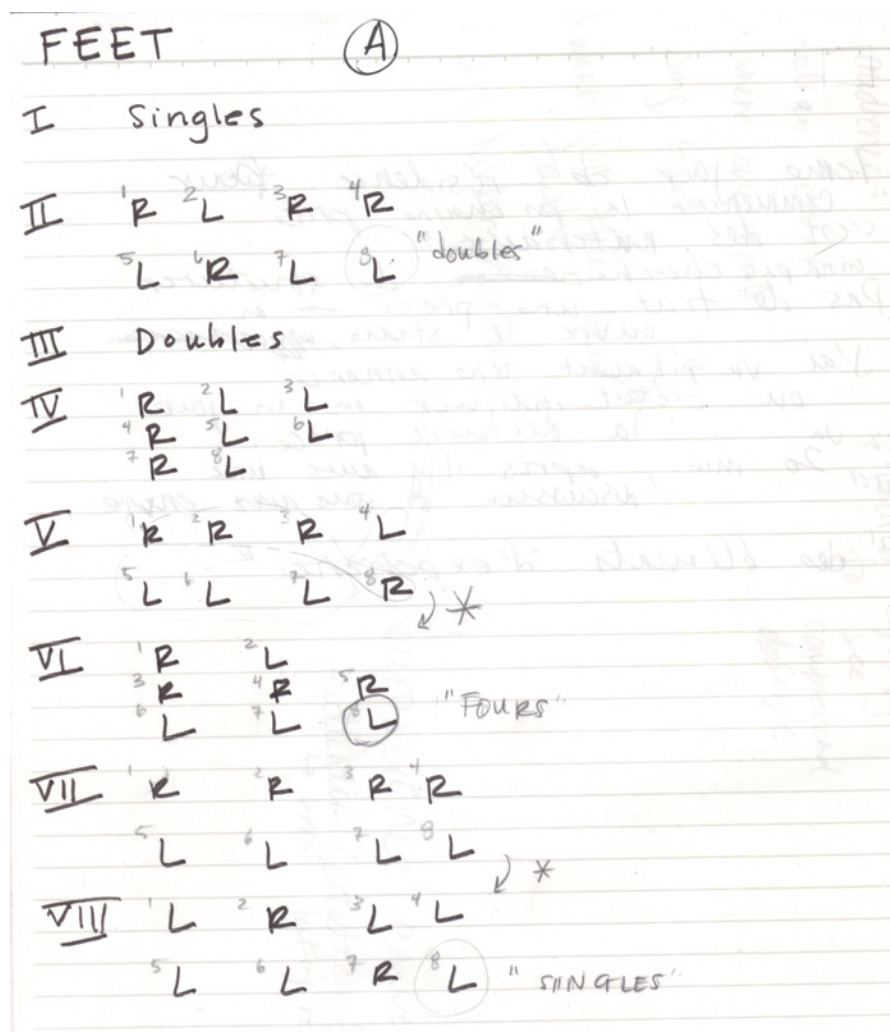 FEET A
I Singles
II 1R 2L 3R 4R
5L 6R 7L 8L "doubles"
III Doubles
IV 1R 2L 3L
4R 5L 6L
7R 8L
V 1R 2R 3R 4L
5L 6L 7L 8R
*
VI 1R 2L
3R 4R 5R
6L 7L 8L "FOURS"
VII 1R 2R 3R 4R
5L 6L 7L 8L
*
VIII 1L 2R 3L 4L
5L 6L 7R 8L "SINGLES"